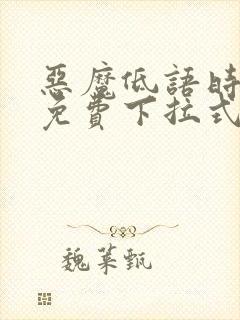 惡魔低語時
免費下拉式
魏菓甄